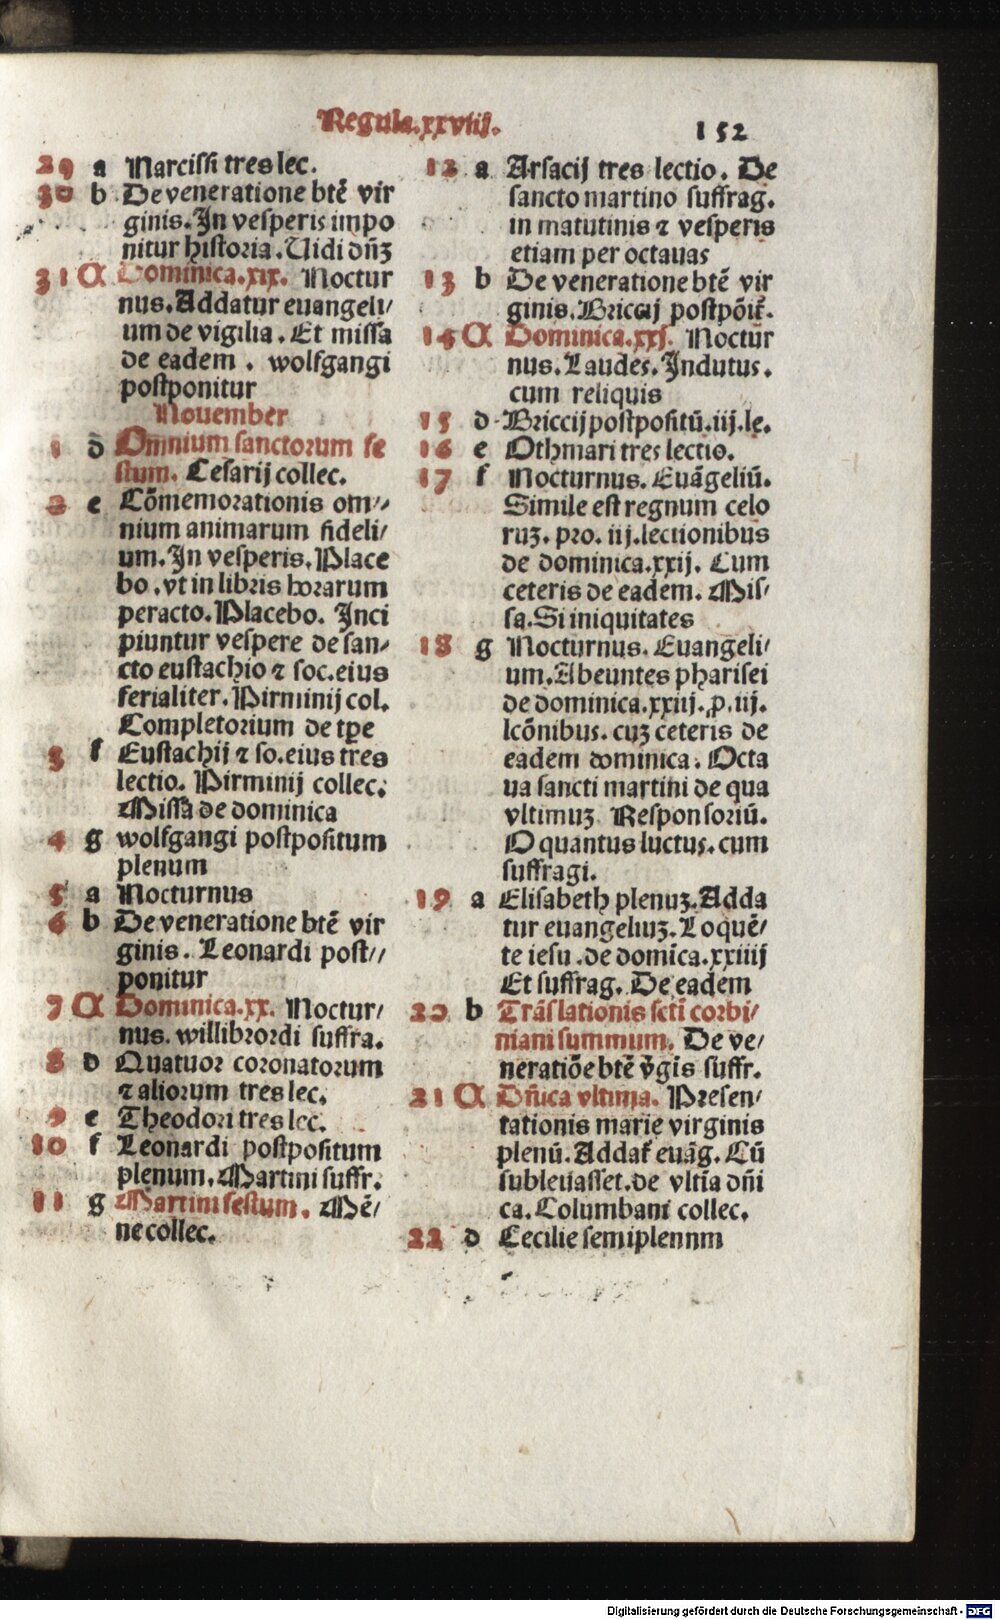 Regula.xxviij.
152
29 a Narcissi tres lec.
30 b De veneratione btē vir
ginis. In vesperis impo
nitur historia. Vidi dn̄ꝫ
31 A Dominica.xix. Noctur
nus. Addatur euangeli/
um de vigilia. Et missa
de eadem. wolfgangi
postponitur
Nouember
1 d Omnium sanctorum fe
stum. Cesarij collec.
2 e Cōmemorationis om/
nium animarum fideli/
um. In vesperis. Place
bo. vt in libris horarum
peracto. Placebo. Inci
piuntur vespere de san/
cto eustachio ⁊ soc. eius
ferialiter. Pirminij col.
Completorium de tꝑe
3 f Eustachij ⁊ so. eius tres
lectio. Pirminij collec.
Missa de dominica
4 g wolfgangi postpositum
plenum
5 a Nocturnus
6 b De veneratione btē vir
ginis. Leonardi post//
ponitur
7 A Dominica.xx. Noctur/
nus. willibrordi suffra.
8 d Quatuor coronatorum
⁊ aliorum tres lec.
9 e Theodori tres lec.
10 f Leonardi postpositum
plenum. Martini suffr.
11 g Martini festum. Mē/
ne collec.
12 a Arsacij tres lectio. De
sancto martino suffrag.
in matutinis ⁊ vesperis
etiam per octauas
13 b De veneratione btē vir
ginis. Briccij postpōit̄.
14 A Dominica.xxj. Noctur
nus. Laudes. Indutus.
cum reliquis
15 d Briccij postpositū. iij. le.
16 e Othmari tres lectio.
17 f Nocturnus. Euāgeliū.
Simile est regnum celo
ruꝫ. pro. iij. lectionibus
de dominica.xxij. Cum
ceteris de eadem. Mis/
sa. Si iniquitates
18 g Nocturnus. Euangeli/
um. Abeuntes pharisei
de dominica.xxiij. ꝓ. iij.
lcōnibus. cuꝫ ceteris de
eadem dominica. Octa
ua sancti martini de qua
vltimuꝫ Responsoriū.
O quantus luctus. cum
suffragi.
19 a Elisabeth plenuꝫ. Adda
tur euangeliuꝫ. Loquē/
te iesu. de domīca.xxiiij
Et suffrag. De eadem
20 b Trāslationis scti̅ corbi/
niani summum. De ve/
neratiōe btē v̄gis suffr.
21 A Dn̄ica vltima. Presen/
tationis marie virginis
plenū. Addat̄ euāg. Cū
subleuasset. de vltīa dn̄i
ca. Columbani collec.
22 d Cecilie semiplennm
Digitalisierung gefördert durch die Deutsche Forschungsgemeinschaft - DFG